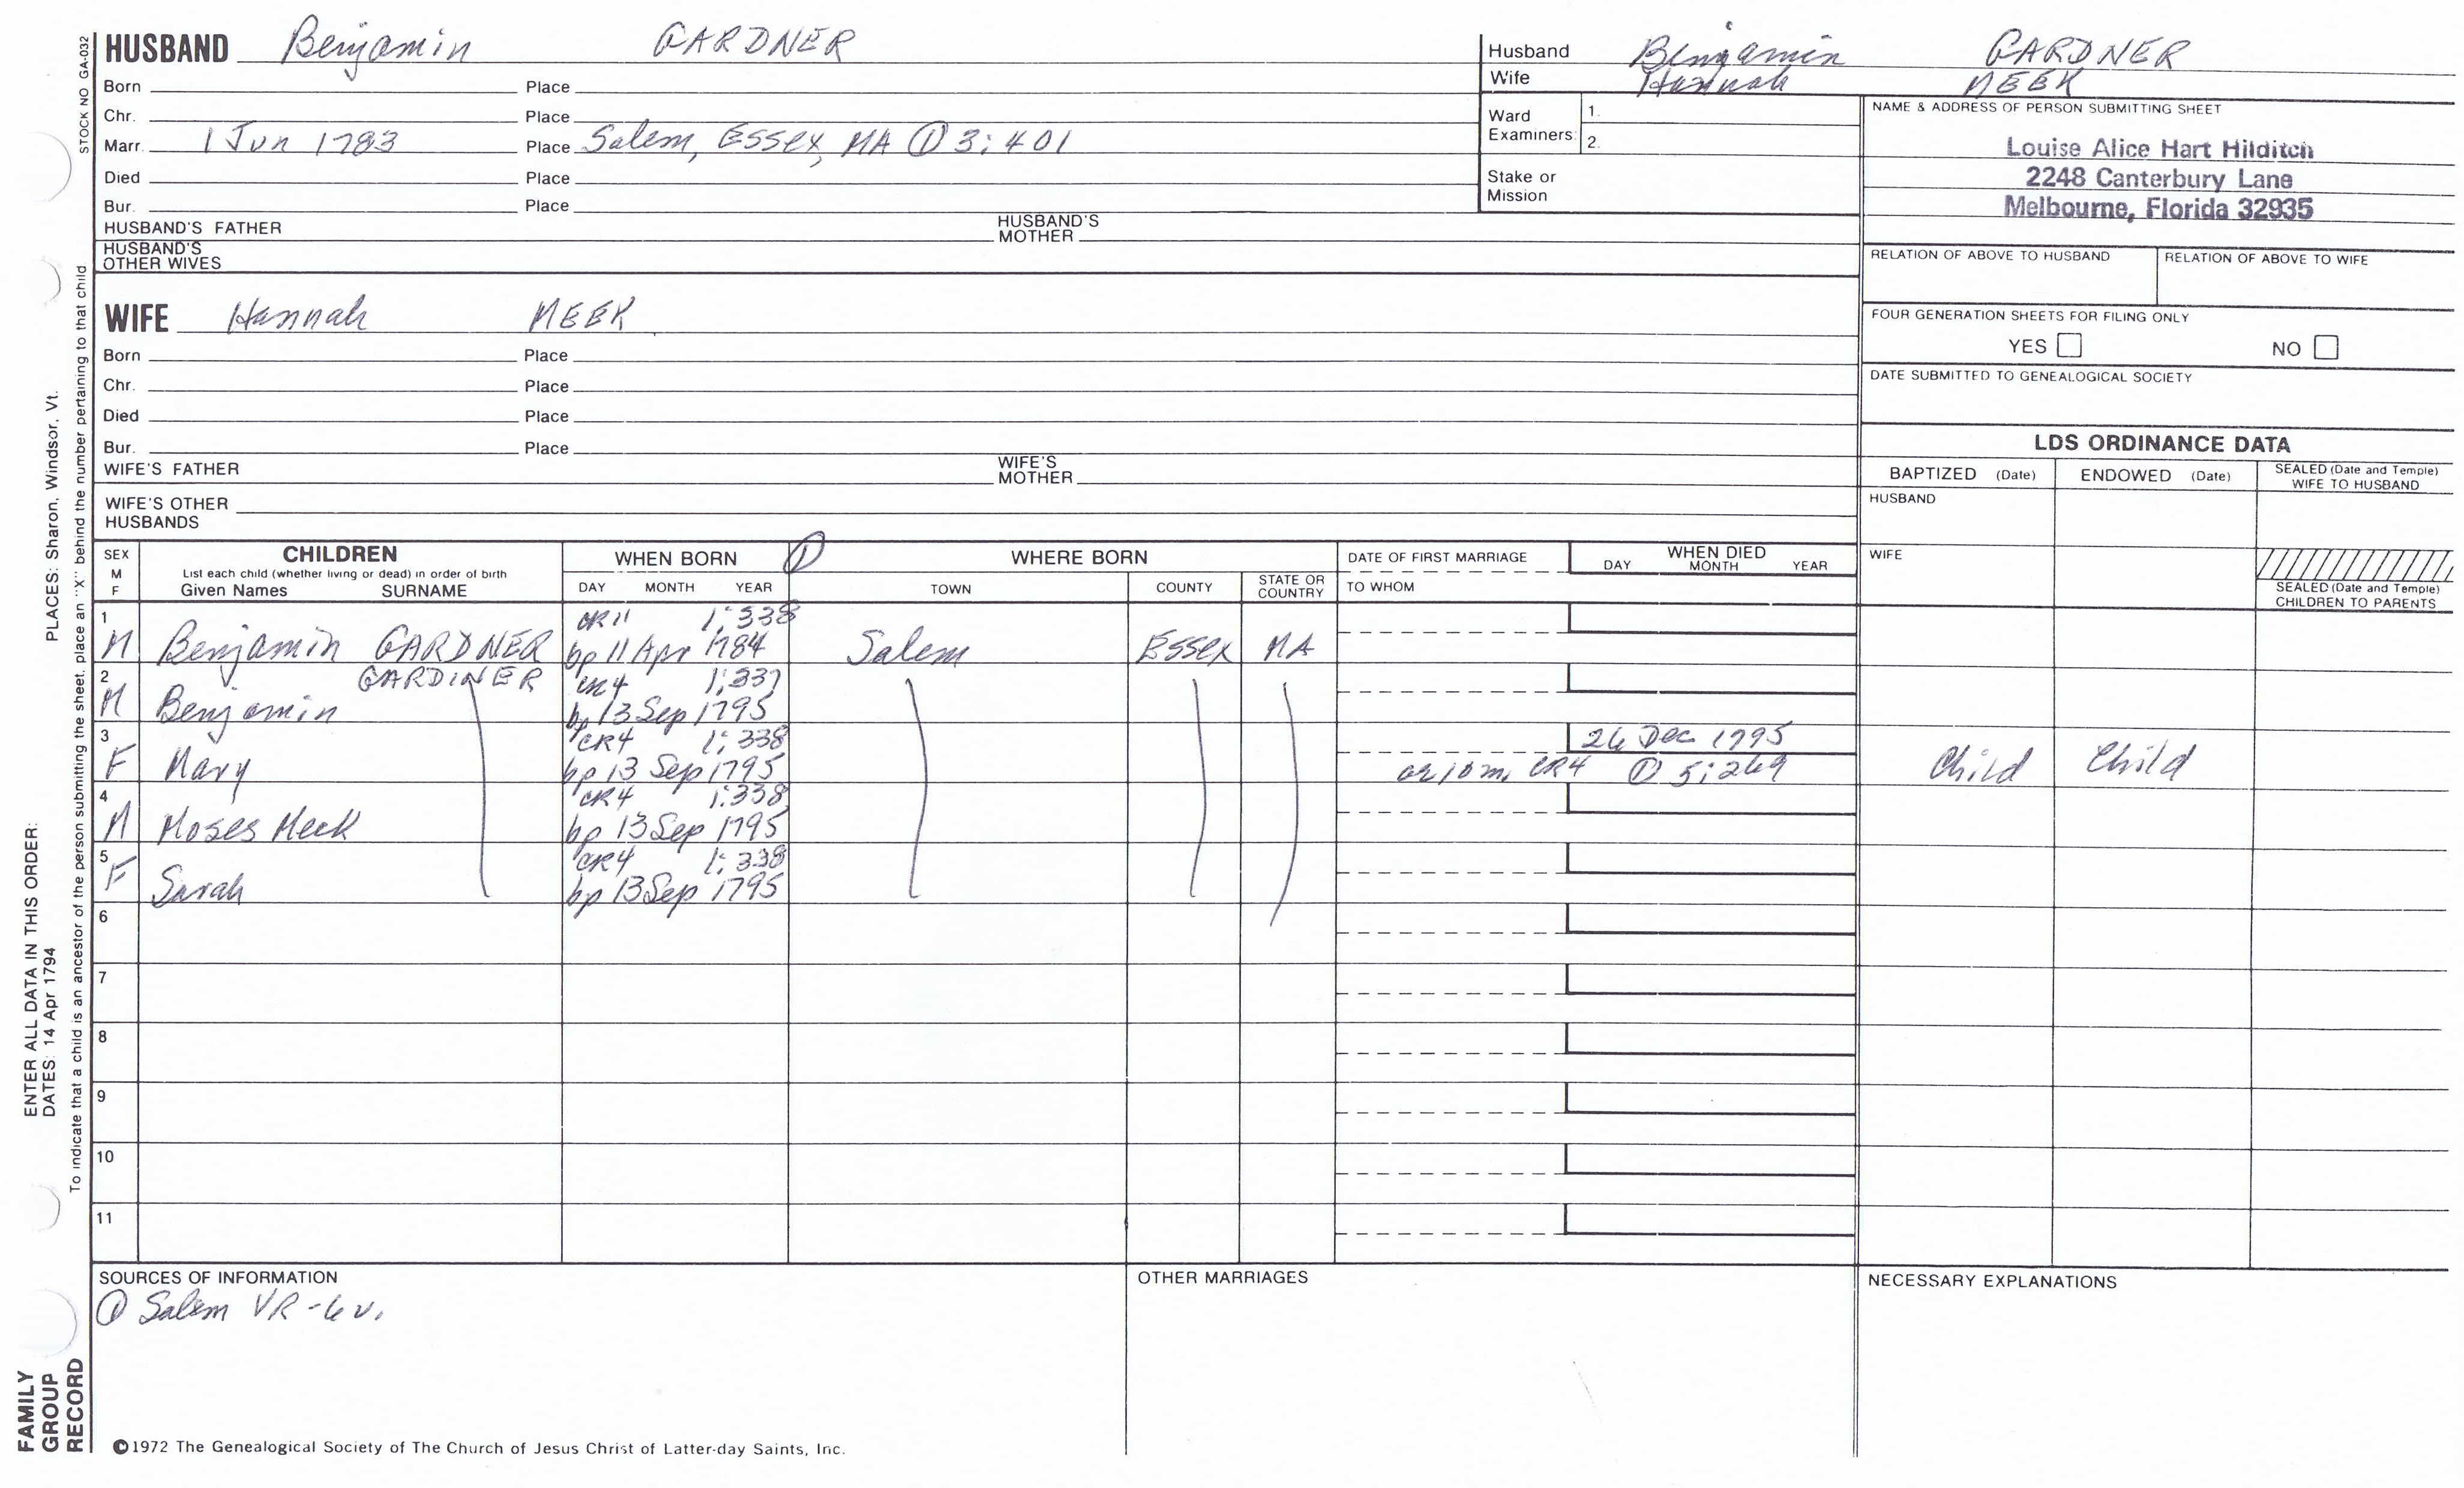 STOCK NO GA-032
HUSBAND Benjamin GARDNER
Born Place
Chr. Place
Marr. 1 Jun 1783 Place Salem, Essex, MA ① 3:401
Died Place
Bur. Place
HUSBAND'S FATHER HUSBAND'S MOTHER
HUSBAND'S OTHER WIVES
Husband Benjamin GARDNER
Wife Hannah MEEK
Ward Examiners: 1.
2.
Stake or Mission
NAME & ADDRESS OF PERSON SUBMITTING SHEET
Louise Alice Hart Hilditch
2248 Canterbury Lane
Melbourne, Florida 32935
RELATION OF ABOVE TO HUSBAND RELATION OF ABOVE TO WIFE
FOUR GENERATION SHEETS FOR FILING ONLY
YES NO
DATE SUBMITTED TO GENEALOGICAL SOCIETY
WIFE Hannah MEEK
Born Place
Chr. Place
Died Place
Bur. Place
WIFE'S FATHER WIFE'S MOTHER
WIFE'S OTHER HUSBANDS
LDS ORDINANCE DATA
BAPTIZED (Date) ENDOWED (Date) SEALED (Date and Temple) WIFE TO HUSBAND
HUSBAND
WIFE
SEALED (Date and Temple) CHILDREN TO PARENTS
SEX M F CHILDREN WHEN BORN ① WHERE BORN DATE OF FIRST MARRIAGE WHEN DIED
List each child (whether living or dead) in order of birth
Given Names SURNAME DAY MONTH YEAR TOWN COUNTY STATE OR COUNTRY TO WHOM DAY MONTH YEAR
1 CR11 1:338
M Benjamin GARDNER bp 11 Apr 1784 Salem Essex MA
2 GARDINER CR4 1:337
M Benjamin bp 13 Sep 1795
3 CR4 1:338 26 Dec 1795
F Mary bp 13 Sep 1795 a2/10m, CR4 ① 5:269 Child Child
4 CR4 1:338
M Moses Meek bp 13 Sep 1795
5 CR4 1:338
F Sarah bp 13 Sep 1795
6
7
8
9
10
11
SOURCES OF INFORMATION
① Salem VR-6v.
OTHER MARRIAGES
NECESSARY EXPLANATIONS
©1972 The Genealogical Society of The Church of Jesus Christ of Latter-day Saints, Inc.
FAMILY
GROUP
RECORD
ENTER ALL DATA IN THIS ORDER:
DATES: 14 Apr 1794 PLACES: Sharon, Windsor, Vt.
To indicate that a child is an ancestor of the person submitting the sheet, place an "X" behind the number pertaining to that child